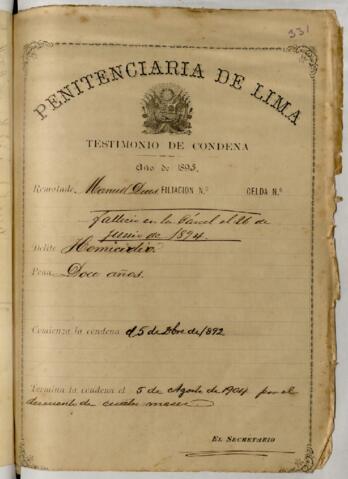 331
PENITENCIARIA DE LIMA
TESTIMONIO DE CONDENA
Año de 1893.
Rematado Manuel FILIACION N.º CELDA N.º
Falleció en la Cárcel el 26 de
Junio de 1894.
Delito Homicidio
Pena Doce años.
Comienza la condena el 5 de Dbre de 1892
Termina la condena el 5 de Agosto de 1904 por el
descuento de cuatro meses
EL SECRETARIO